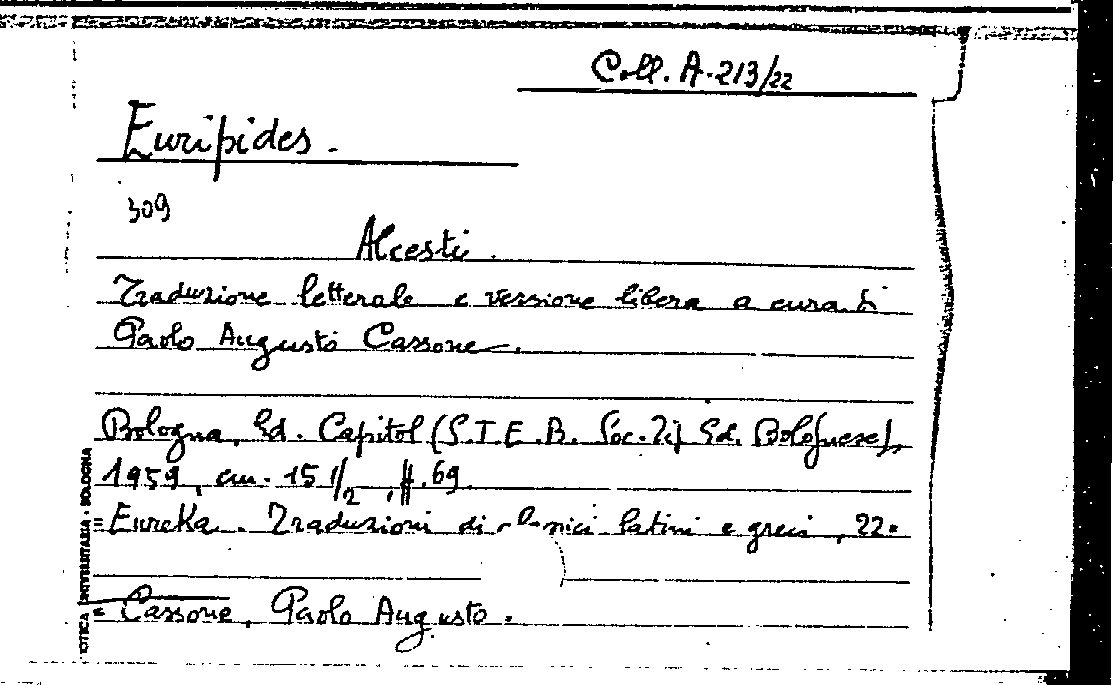 Coll. A-213/22
Euripides.
309
Alcesti.
Traduzione letterale e versione libera a cura di
Paolo Augusto Cassone.
Bologna, Ed. Capitol (S.T.E.B. Soc. Ti. Ed. Bolognese),
1959, cm. 15 1/2, pp. 69
=Eureka. Traduzioni di classici latini e greci, 22=
= Cassone, Paolo Augusto.
OTECA UNIVERSITARIA - BOLOGNA